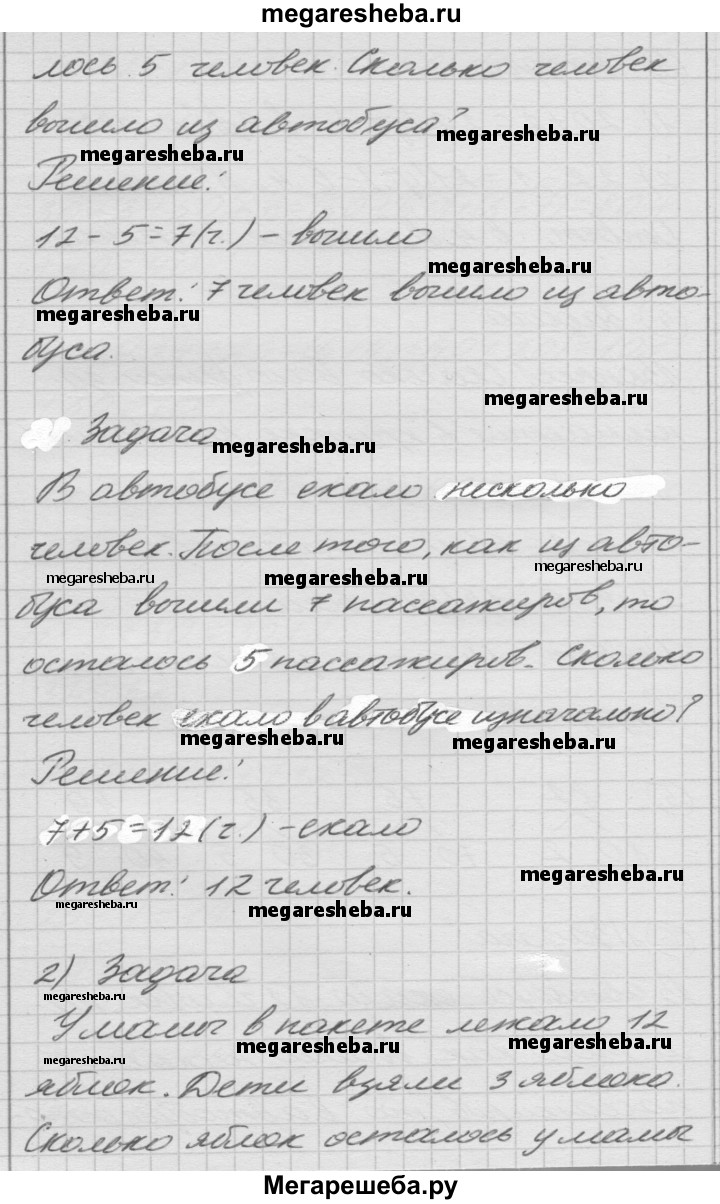 megaresheba.ru
лось 5 человек. Сколько человек
вышло из автобуса?
megaresheba.ru
megaresheba.ru
Решение:
12 - 5 = 7 (ч.) - вышло
megaresheba.ru
Ответ: 7 человек вышло из авто-
megaresheba.ru
буса.
megaresheba.ru
Задача
megaresheba.ru
В автобусе ехало несколько
человек. После того, как из авто-
megaresheba.ru
megaresheba.ru
megaresheba.ru
буса вышли 7 пассажиров, то
осталось 5 пассажиров. Сколько
человек ехало в автобусе изначально?
megaresheba.ru
megaresheba.ru
Решение:
7 + 5 = 12 (ч.) - ехало
Ответ: 12 человек.
megaresheba.ru
megaresheba.ru
megaresheba.ru
2) Задача
megaresheba.ru
У мамы в пакете лежало 12
megaresheba.ru
megaresheba.ru
megaresheba.ru
яблок. Дети взяли 3 яблока.
Сколько яблок осталось у мамы
Мегарешеба.ру